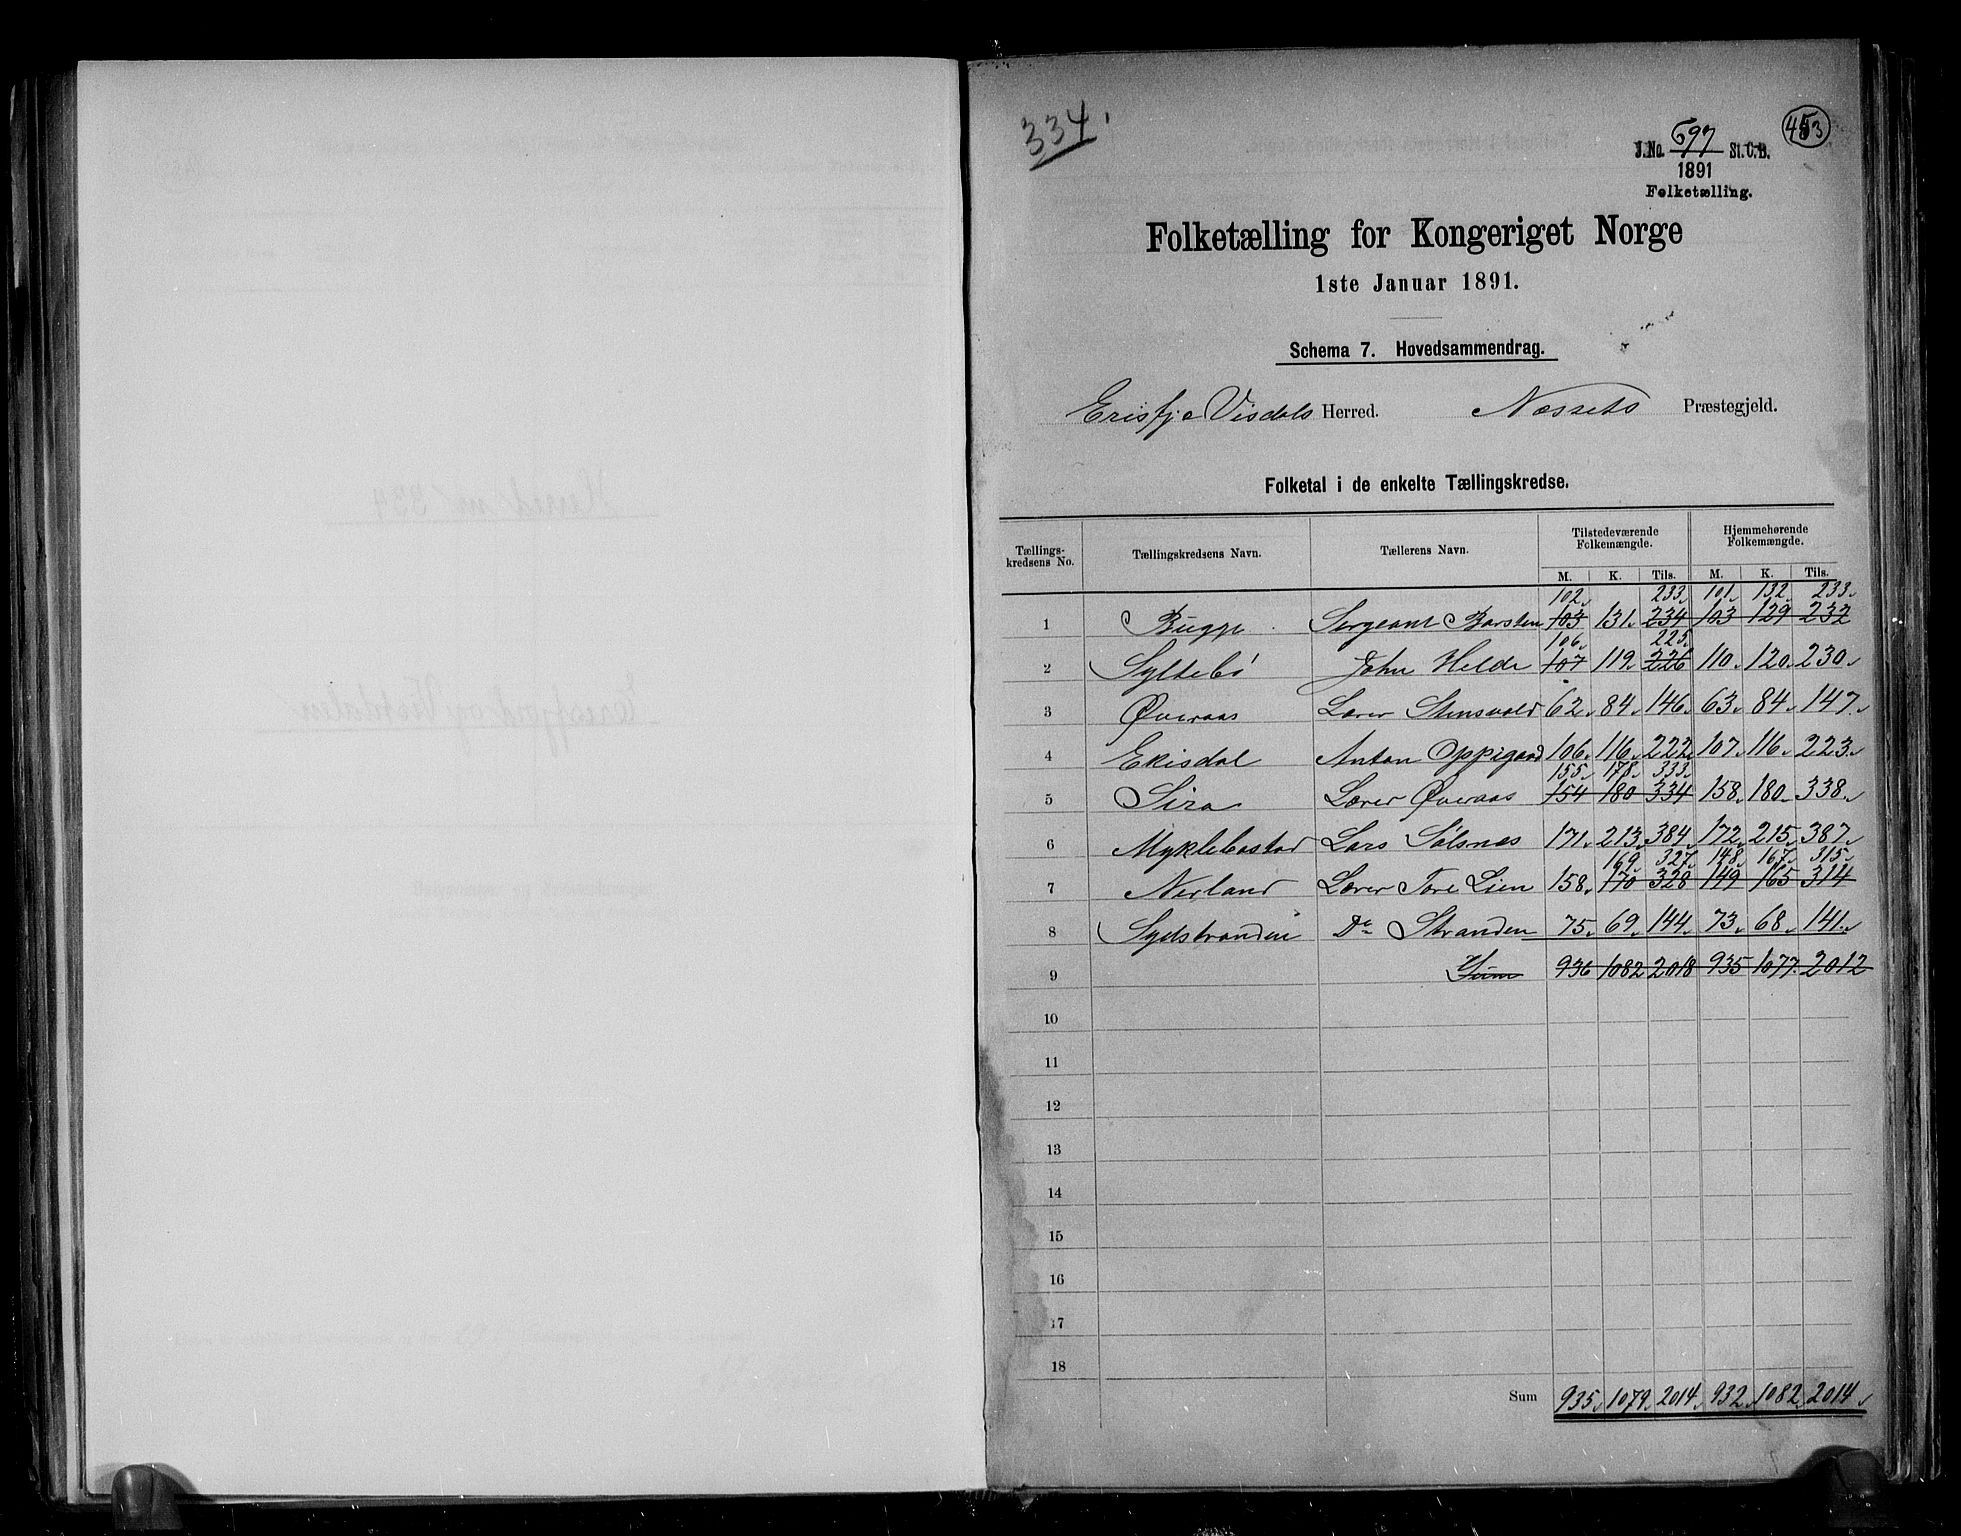 334.
453
J.No. 697 St.C.B.
1891
Folketælling.
Folketælling for Kongeriget Norge
1ste Januar 1891.
Schema 7. Hovedsammendrag.
Erisfj o Visdals Herred. Næssets Præstegjeld.
Folketal i de enkelte Tællingskredse.
Tællings-kredsens No. Tællingskredsens Navn. Tællerens Navn. Tilstedeværende Folkemængde. Hjemmehørende Folkemængde.
M. K. Tils. M. K. Tils.
102 233 101 132 233
1 Bugge Sergeant Barsten 103 131 234 103 129 232
106 225
2 Syltebö John Helde 107 119 226 110 120 230
3 Øveraas Lærer Stensvold 62 84 146 63 84 147
4 Ekisdal Anton Oppigaard 106 116 222 107 116 223
155 178 333
5 Sira Lærer Øveraas 154 180 334 158 180 338
6 Myklebostad Lars Sølsnes 171 213 384 172 215 387
169 327 148 167 315
7 Nerland Lærer Tore Lien 158 170 328 149 165 314
8 Sydstranden Do Stranden 75 69 144 73 68 141
9 Sum 936 1082 2018 935 1077 2012
10
11
12
13
14
15
16
17
18
Sum 935 1079 2014 932 1082 2014